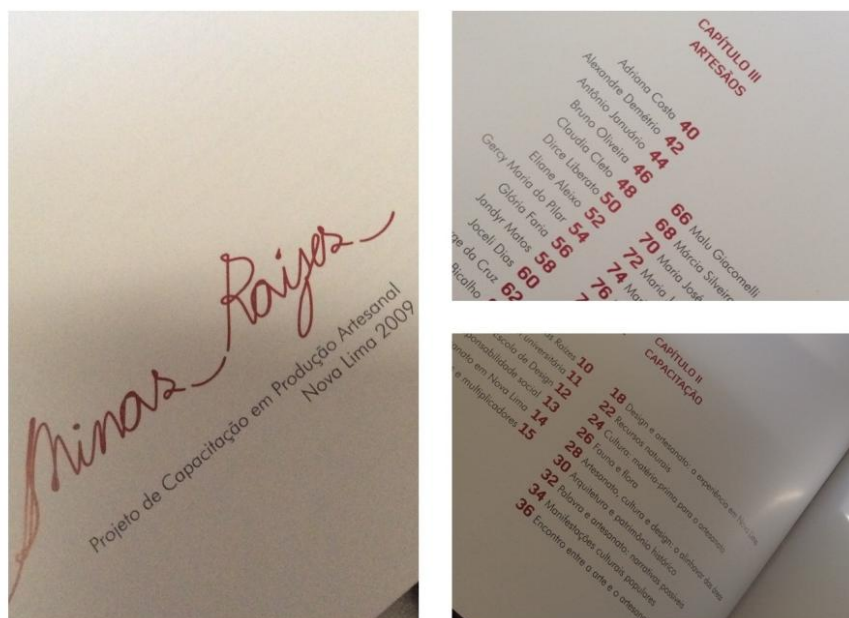 Minas Raízes
Projeto de Capacitação em Produção Artesanal
Nova Lima 2009
CAPÍTULO III
ARTESÃOS
Adriana Costa 40
Alexandre Demétrio 42
Antônio Januário 44
Bruno Oliveira 46
Claudia Cleto 48
Dirce Liberato 50
Eliane Aleixo 52
Gercy Maria do Pilar 54
Glória Faria 56
Jandyr Matos 58
Joceli Dias 60
da Cruz 62
66 Malu Giacomelli
68 Márcia Silveira
70 Maria José
72 Maria
74
76
Raízes 10
universitária 11
Escola de Design 12
social 13
em Nova Lima 14
e multiplicadores 15
CAPÍTULO II
CAPACITAÇÃO
18 Design e artesanato: a experiência em Nova Lima
22 Recursos naturais
24 Cultura: matéria-prima para o artesanato
26 Fauna e flora
28 Artesanato, cultura e design: o alinhavar da
30 Arquitetura e patrimônio histórico
32 Palavra e artesanato: narrativas possíveis
34 Manifestações culturais populares
36 Encontro entre a arte e o